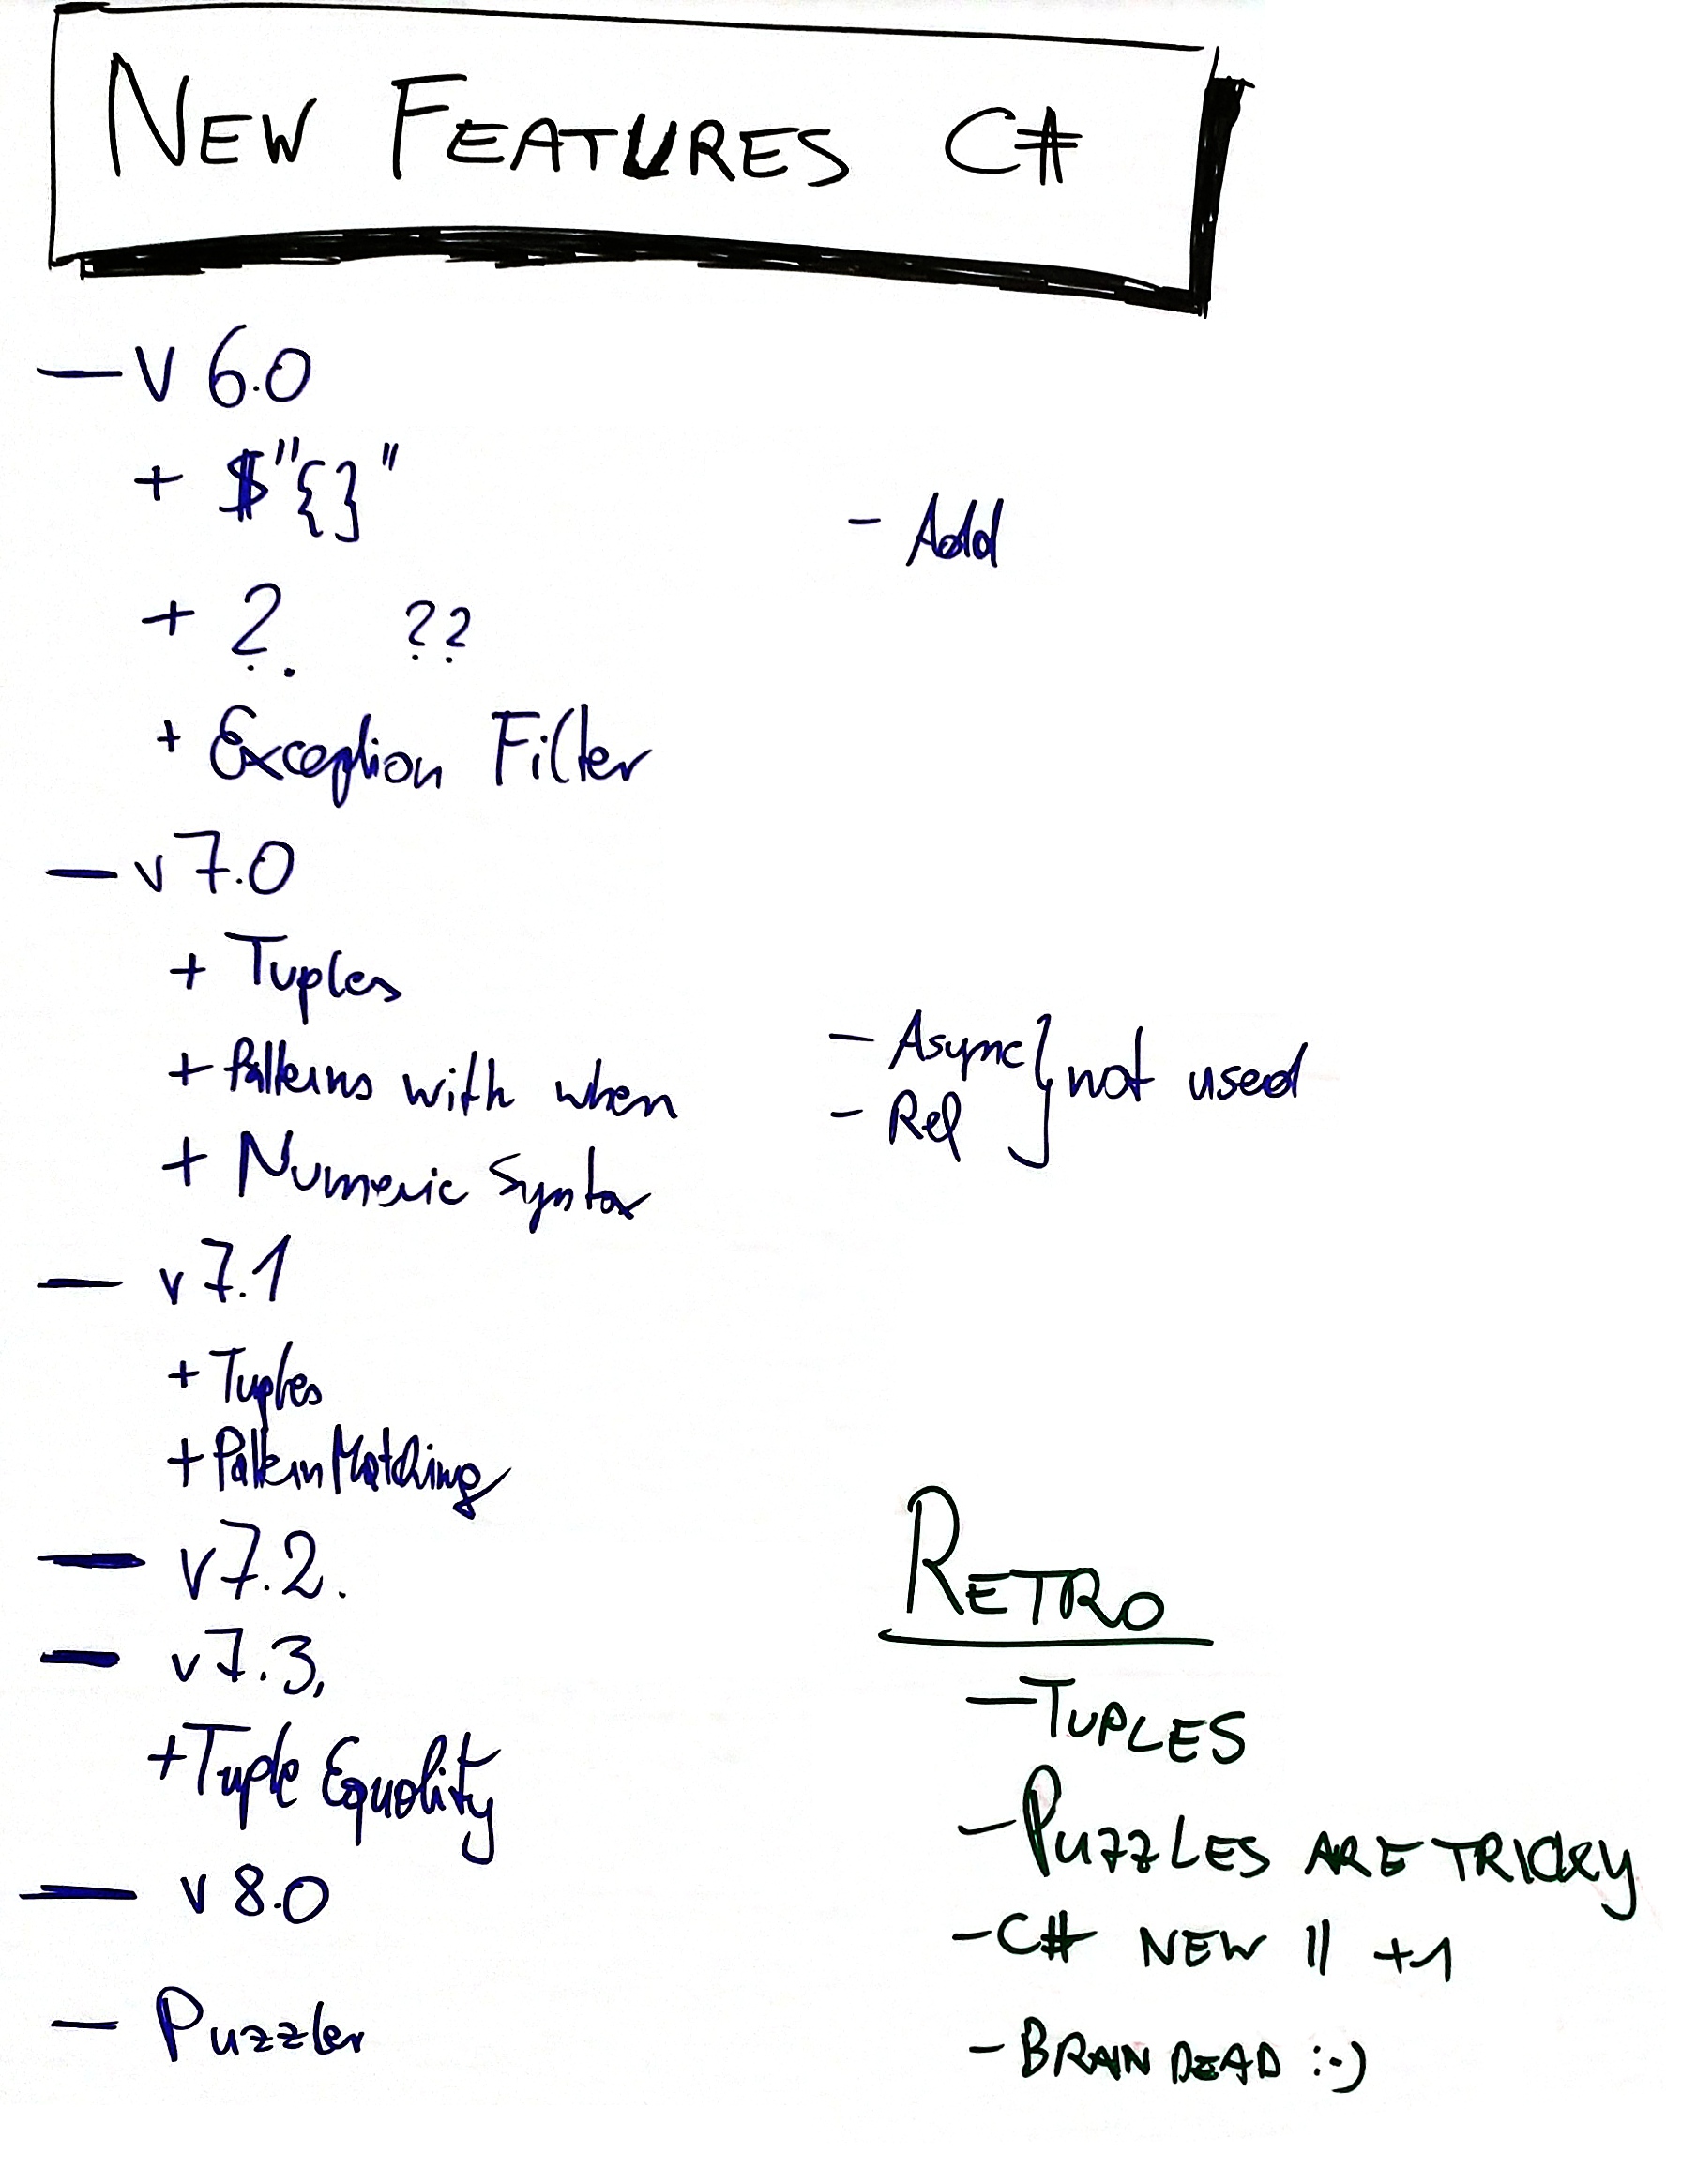 NEW FEATURES C#
— v 6.0
+ $"{}"
- Add
+ ?. ??
+ Exception Filter
— v 7.0
+ Tuples
+ Patterns with when
+ Numeric Syntax
- Async } not used
- Ref
— v 7.1
+ Tuples
+ Pattern Matching
— v7.2.
— v7.3.
+ Tuple Equality
— v 8.0
— Puzzler
RETRO
- TUPLES
- PUZZLES ARE TRICKY
- C# NEW || +1
- BRAIN DEAD :-)